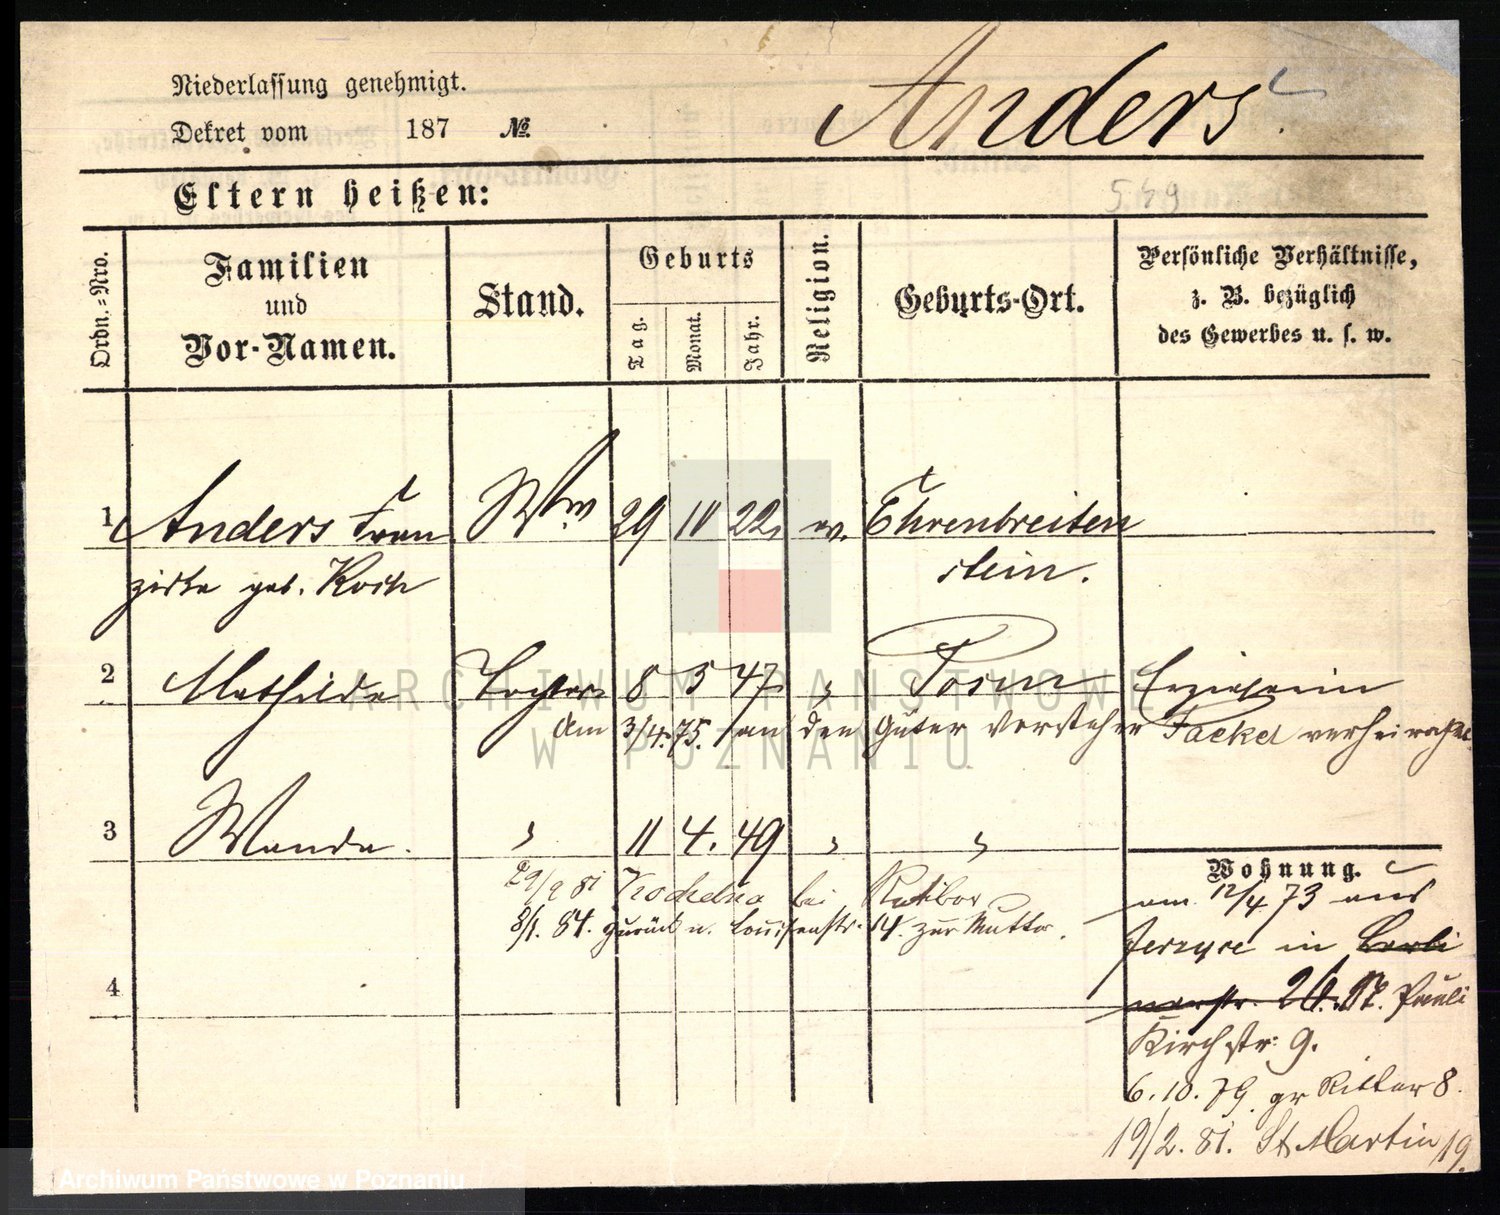 Niederlassung genehmigt.
Dekret vom 187 №
Anders.
Eltern heißen:
549
Ordn.=Nro.
Familien
und
Vor-Namen.
Stand.
Geburts
Tag.
Monat.
Jahr.
Religion.
Geburts-Ort.
Persönliche Verhältnisse,
z. B. bezüglich
des Gewerbes u. s. w.
1 Anders Fran Ww 29 IV 22. ev. Ehrenbreiten
ziska geb. Koch stein.
2 Mathilde Tochter 8 5 47. " Posen Erzieherin
Am 3/4.75. an den Güter Vorsteher Fackel verheirathet
3 Wanda. " 11 4. 49 " "
Wohnung.
29/9 81 bei Ratibor
8/1. 84. zurück n. Louisenstr. 14. zur Mutter.
am 12/4 73 aus
Jerzyce in Berli
nerstr. 26. St. Pauli
4
Kirchstr. 9.
6. 10. 79. gr Ritter 8.
19/2. 81. St Martin 19.
ARCHIWUM PAŃSTWOWE
W POZNANIU
Archiwum Państwowe w Poznaniu